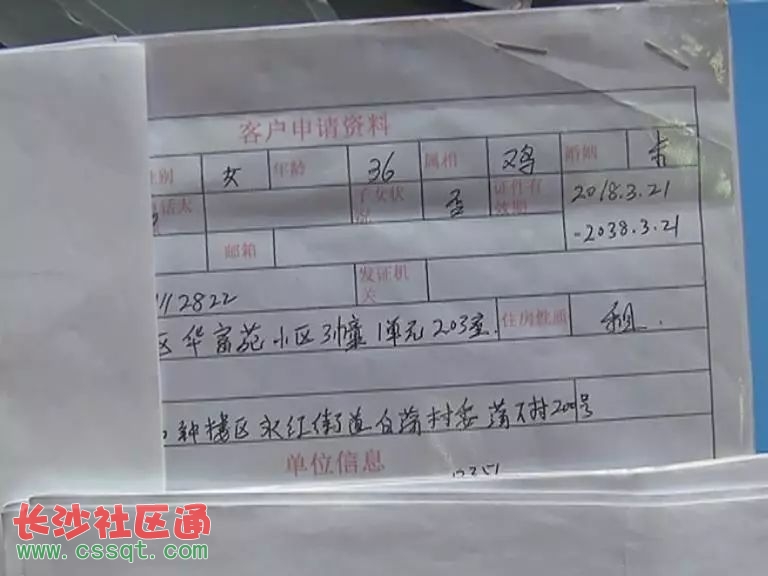 客户申请资料
性别 女 年龄 36 属相 鸡 婚姻 未
子女状况 否 证件有效期 2018.3.21
-2038.3.21
邮箱
112822 发证机关
区华富苑小区3幢1单元203室. 住房性质 租.
钟楼区永红街道白荡村委蒲下村200号
单位信息
长沙社区通
www.cssqt.com